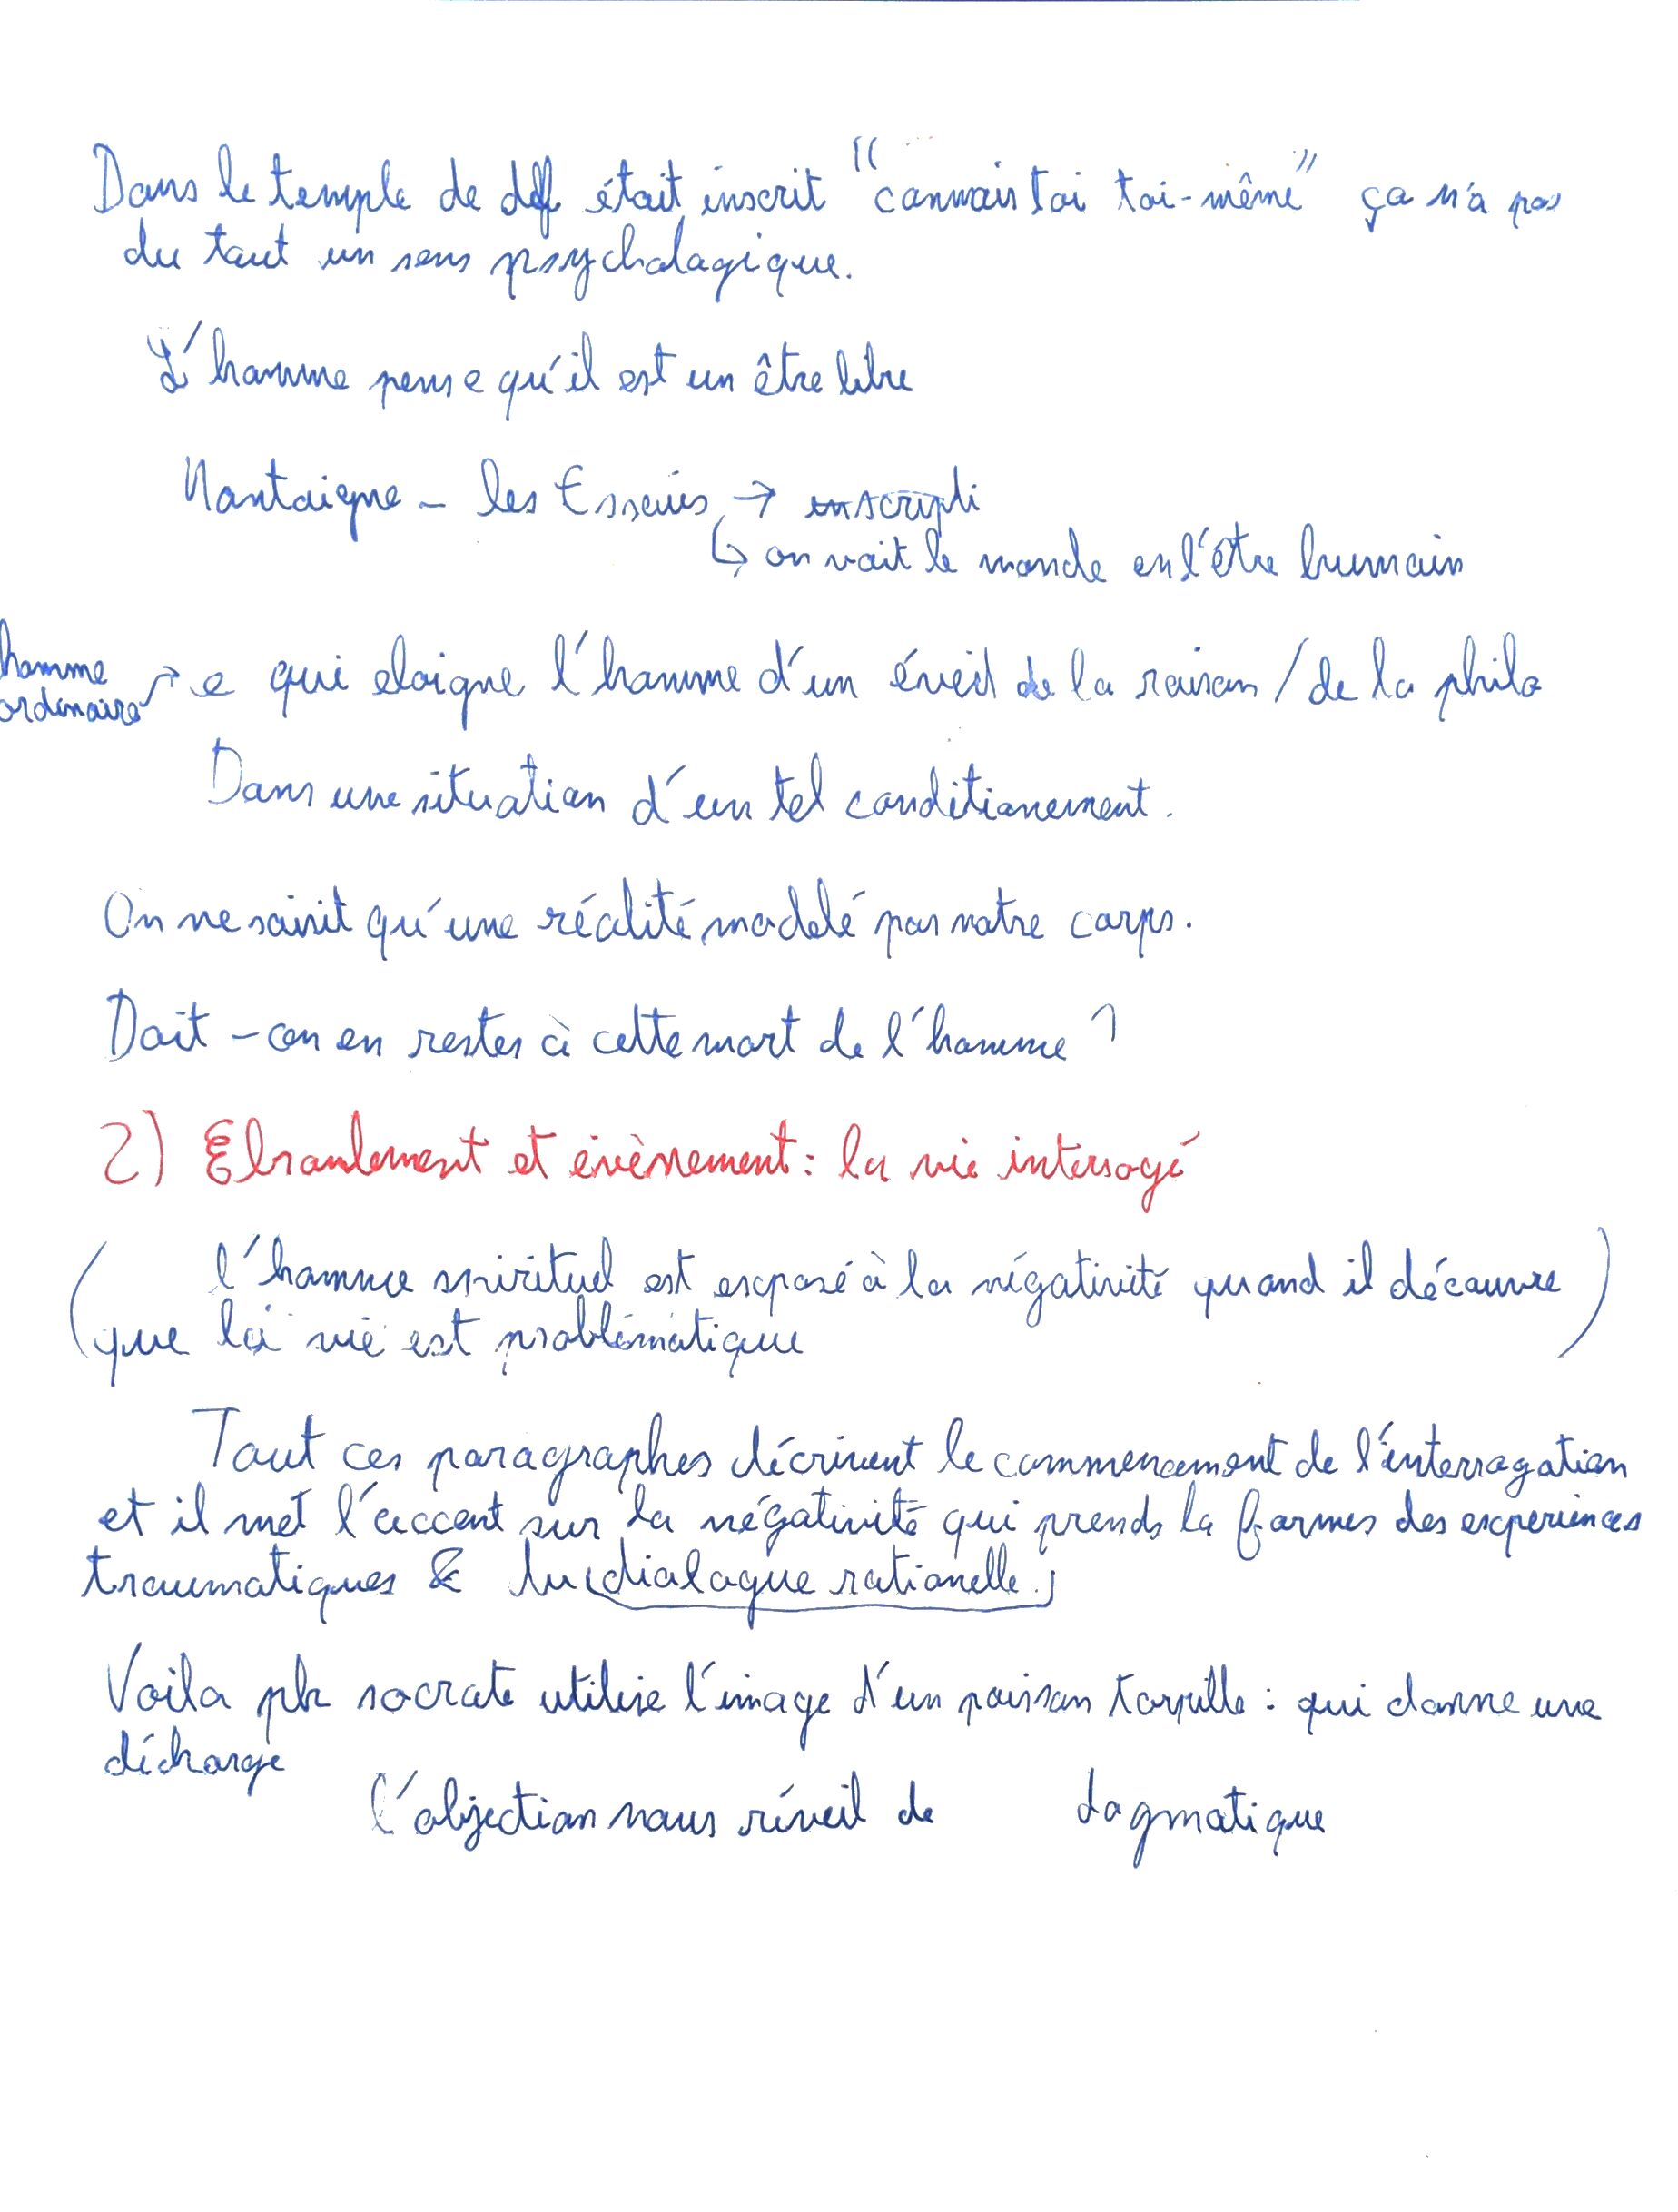 Dans le temple de delf était inscrit "connais toi toi-même" ça n'a pas
du tout un sens psychologique.
L'homme pense qu'il est un être libre
Montaigne - les Essais → inscripti
↳ on voit le monde en l'être humain
homme
ordinaire → e qui eloigne l'homme d'un éveil de la raison / de la philo
Dans une situation d'un tel conditionement.
On ne saisit qu'une réalité modelé par notre corps.
Doit-on en rester à cette mort de l'homme ?
2) Ebranlement et évènement : la vie interrogé
(l'homme spirituel est exposé à la négativité quand il découvre
que la vie est problématique)
Tout ces paragraphes décrivent le commencement de l'interrogation
et il met l'accent sur la négativité qui prends la formes des experiences
traumatiques & du (dialogue rationelle.)
Voila pk socrate utilise l'image d'un poisson torpille : qui donne une
décharge
l'objection nous réveil de dogmatique